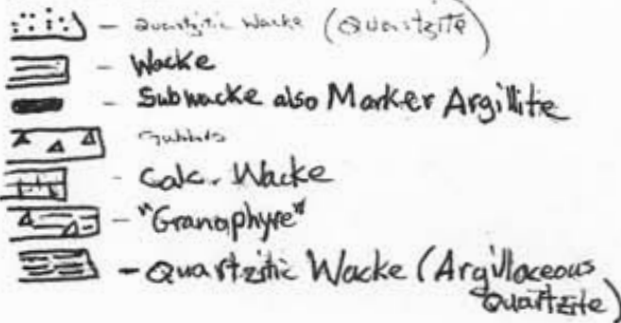 - Quartzitic Wacke (Quartzite)
- Wacke
- Subwacke also Marker Argillite
- Gabbro
- Calc. Wacke
- "Granophyre"
- Quartzitic Wacke (Argillaceous
Quartzite)